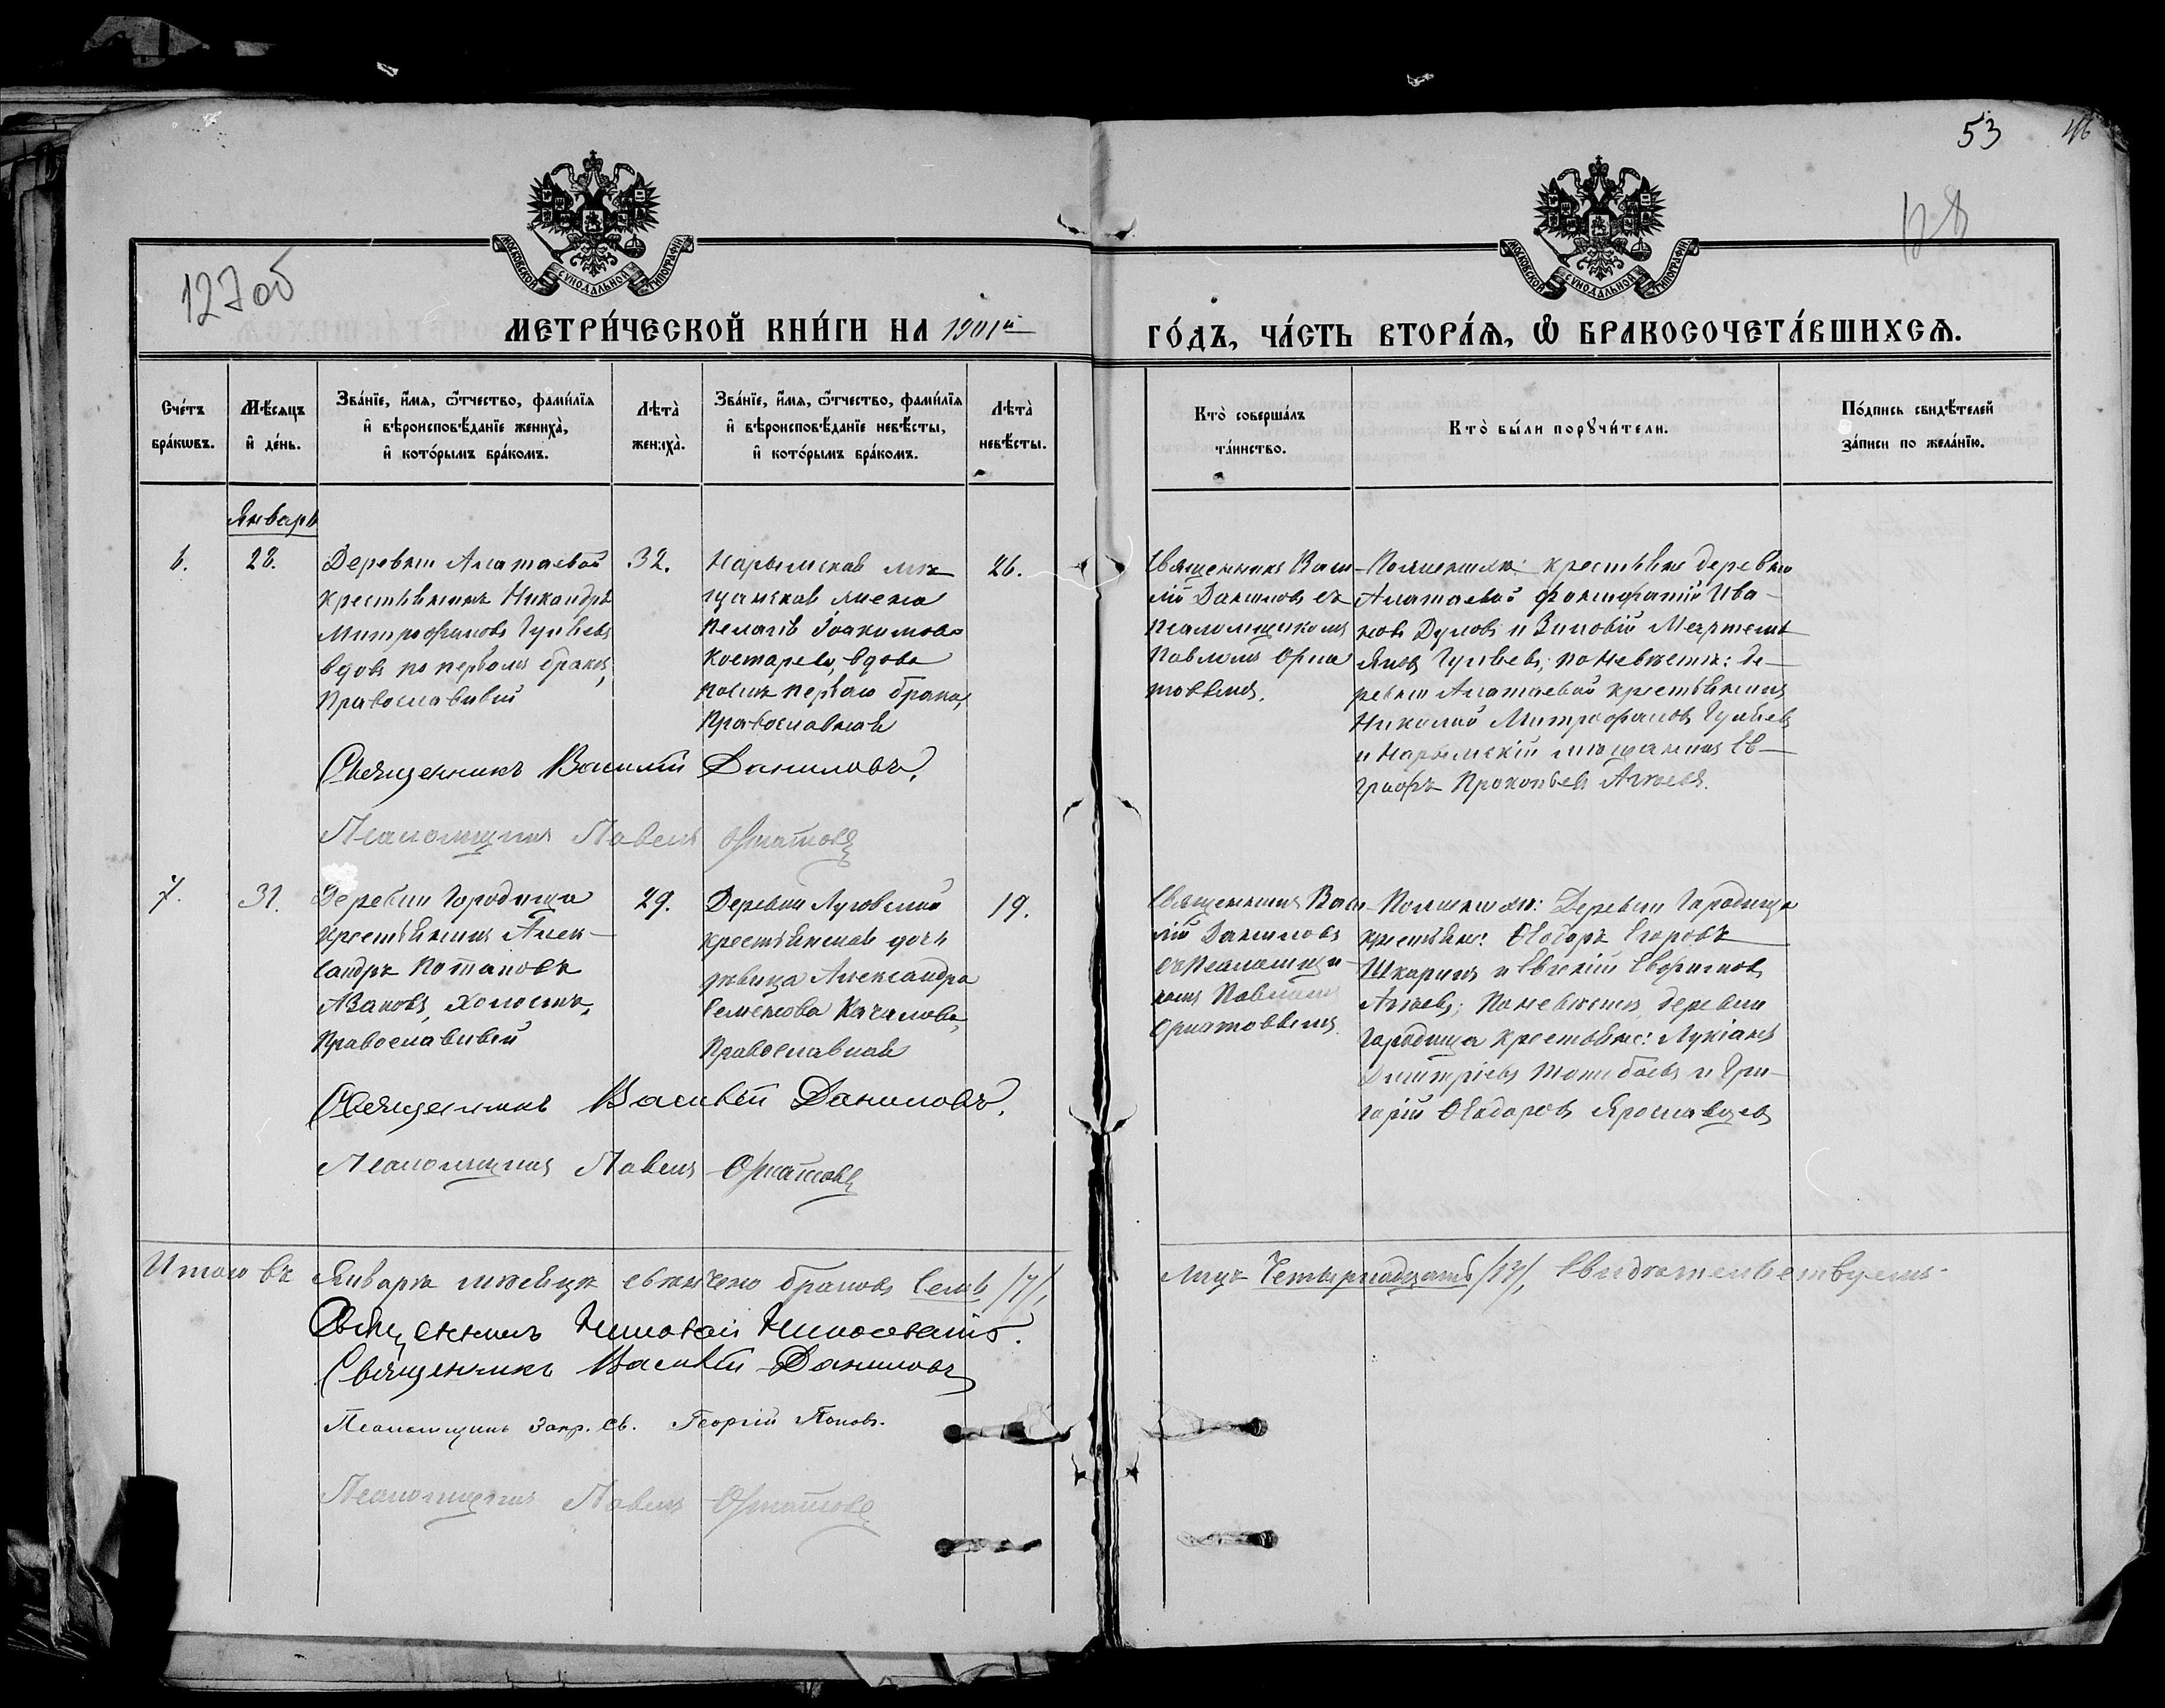 53
46
128
127об
МОСКОВСКОЙ СѴНОДАЛЬНОЙ ТИПОГРАФІИ
МОСКОВСКОЙ СѴНОДАЛЬНОЙ ТИПОГРАФІИ
МЕТРИ́ЧЕСКОЙ КНИ́ГИ НА 1901й
ГО́ДЪ, ЧА́СТЬ ВТОРА́Ѧ, Ѽ БРАКОСОЧЕТА́ВШИХСѦ.
Сче́тъ
бра́кѡвъ.
Мѣ́сяцъ
и҆ де́нь.
Зва́нїе, и҆́мѧ, ѻ҆́тчество, фами́лїѧ
и҆ вѣроисповѣ́данїе жениха̀,
и҆ кото́рымъ бра́комъ.
Лѣта̀
жениха̀.
Зва́нїе, и҆́мѧ, ѻ҆́тчество, фами́лїѧ
и҆ вѣроисповѣ́данїе невѣ́сты,
и҆ кото́рымъ бра́комъ.
Лѣта̀
невѣ́сты.
Кто̀ соверша́лъ
та́инство.
Кто̀ бы́ли порꙋчи́тели.
По́дпись свидѣ́телей
за́писи по жела́нїю.
Январь
6.
28.
Деревни Алатаевой
крестьянинъ Никандръ
Митрофановъ Гуляевъ
вдовъ по первомъ бракѣ,
Православный
32.
Нарымская мѣ
щанская жена
Пелагія Іоакимова
Костарева, вдова
послѣ перваго брака,
Православная
26.
Священникъ Васи
лій Даниловъ съ
псаломщикомъ
Павломъ Орна
товымъ.
По женихѣ: крестьяне деревни
Алатаевой Ива-
новъ Дуловъ и Зиновій
Гуляевъ; по невѣстѣ: де-
ревни Алатаевой крестьянинъ
Николай Митрофановъ Гуляевъ
и Нарымскій мѣщанинъ Ев-
графъ Прокопьевъ
Священникъ Василій Даниловъ.
Псаломщикъ Павелъ Орнатовъ
7.
31.
Деревни Городища
крестьянинъ Алек-
сандръ Потаповъ
Азановъ, холостъ,
Православный
29.
Деревни Луговской
крестьянская дочь
дѣвица Александра
Семенова Качалова,
Православная
19.
Священникъ Васи
лій Даниловъ
съ псаломщи-
комъ Павломъ
Орнатовымъ
По женихѣ: Деревни Городища
крестьяне: Ѳедоръ Егоровъ
Шкаринъ и Евгеній
по невѣстѣ деревни
Городища крестьяне: Лукіанъ
Димитріевъ и Гри-
горій Ѳедоровъ Ярославцевъ
Священникъ Василій Даниловъ.
Псаломщикъ Павелъ Орнатовъ
Итого въ Январѣ мѣсяцѣ свѣнчено браковъ Семь /7/,
лицъ Четырнадцать /14/, Свидѣтельствуемъ
Священникъ Николай
Священникъ Василій Даниловъ
Псаломщикъ Георгій Поповъ.
Псаломщикъ Павелъ Орнатовъ